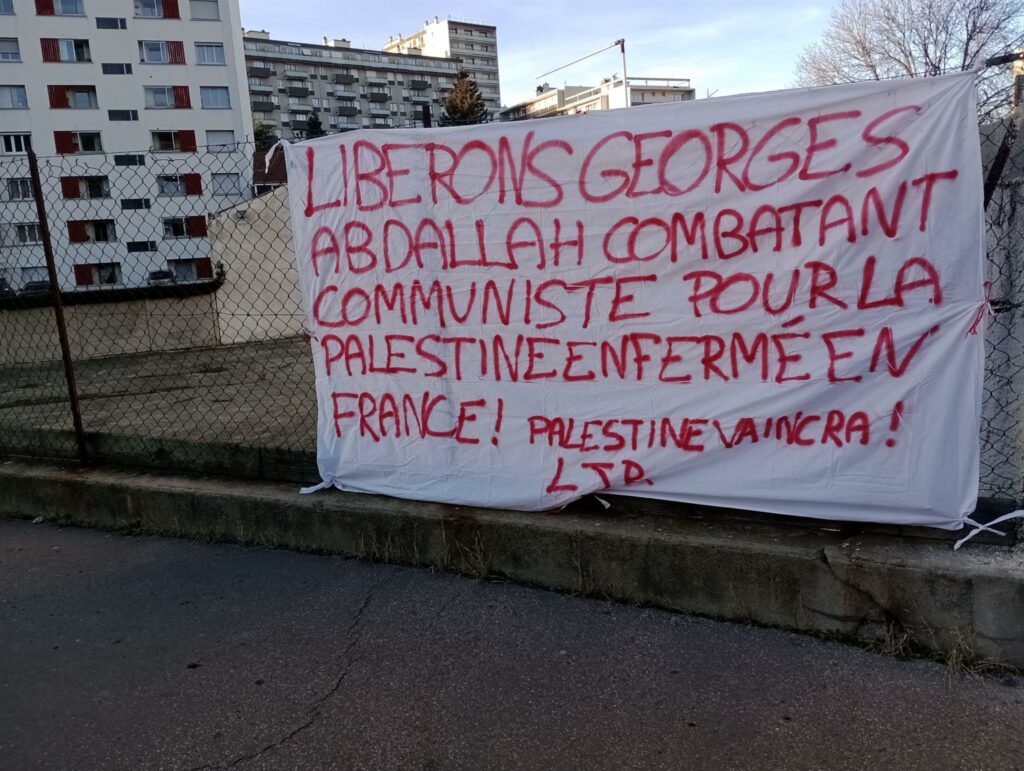 LIBERONS GEORGES
ABDALLAH COMBATANT
COMMUNISTE POUR LA
PALESTINE ENFERMÉ EN
FRANCE! PALESTINE VAINCRA!
LJR.